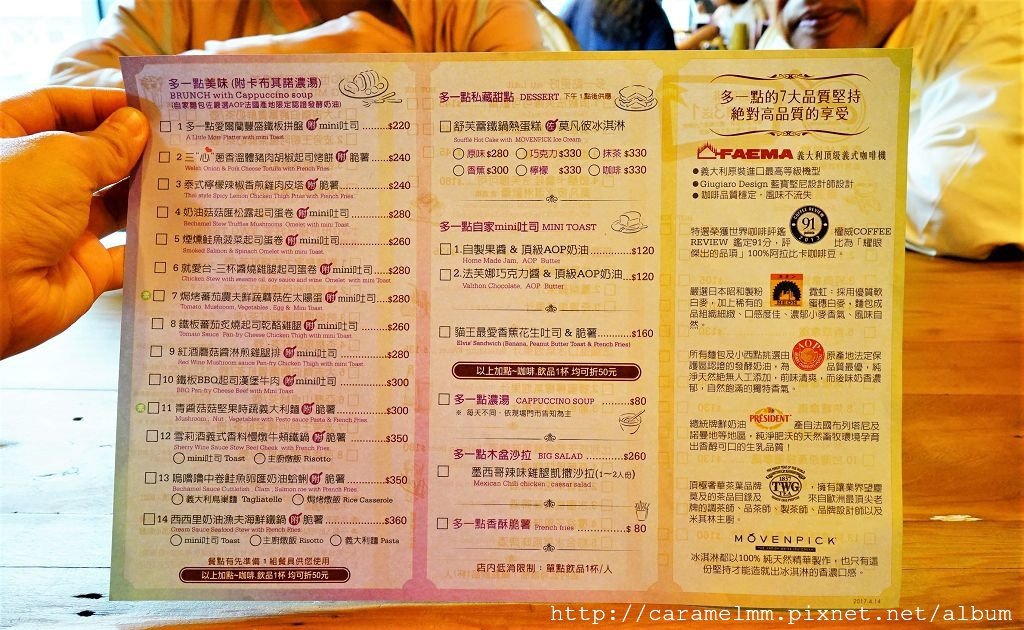 多一點美味 (附卡布其諾濃湯)
BRUNCH with Cappuccino soup
(自家麵包佐嚴選AOP法國產地限定認證發酵奶油)
1 多一點愛爾蘭豐盛鐵板拼盤 附 mini吐司 ........$220
A Little More Platter with mini Toast
2 三"心"蔥香溫體豬肉胡椒起司烤餅 附 脆薯.....$240
Welsh Onion & Pork Cheese Tortilla with French Fries
3 泰式檸檬辣椒香煎雞肉皮塔 附 脆薯..............$240
Thai style Spicy Lemon Chicken Thigh Pitta with French Fries
4 奶油菇菇匯松露起司蛋卷 附 mini吐司..........$280
Bechamel Stew Truffles Mushrooms Omelet with mini Toast
5 煙燻鮭魚菠菜起司蛋卷 附 mini吐司.............$260
Smoked Salmon & Spinach Omelet with mini Toast
6 就愛台-三杯醬燒雞腿起司蛋卷 附 mini吐司...$260
Chicken Stew with sesame oil, soy sauce and wine Omelet with mini Toast
7 焗烤蕃茄農夫鮮蔬蘑菇佐太陽蛋 附 mini吐司...$280
Tomato, Mushroom, Vegetables, Egg & Mini Toast
8 鐵板蕃茄炙燒起司乾酪雞腿 附 mini吐司........$260
Tomato Sauce Pan-fry Cheese Chicken Thigh with mini Toast
9 紅酒蘑菇醬淋煎雞腿排 附 mini吐司.............$280
Red Wine Mushroom sauce Pan-fry Chicken Thigh with mini Toast
10 鐵板BBQ起司漢堡牛肉 附 mini吐司............$300
BBQ Pan-fry Cheese Beef with Mini Toast
11 青醬菇菇堅果時蔬義大利麵 附 脆薯............$300
Mushroom, Nut, Vegetables with Pesto sauce Pasta & French Fries
12 雪莉酒義式香料慢燉牛頰鐵鍋 附 脆薯.........$350
Sherry Wine Sauce Stew Beef Cheek with French Fries
mini吐司 Toast 主廚燉飯 Risotto
13 嗚嚕嚕中卷鮭魚卵匯奶油蛤蜊 附 脆薯.........$350
Bechamel Sauce Cuttlefish, Clam, Salmon roe with French Fries
義大利鳥巢麵 Tagliatelle 焗烤燉飯 Rice Casserole
14 西西里奶油漁夫海鮮鐵鍋 附 脆薯...............$360
Cream Sauce Seafood Stew with French Fries
mini吐司 Toast 主廚燉飯 Risotto 義大利麵 Pasta
餐點有先準備1組餐具供您使用
以上加點~咖啡.飲品1杯 均可折50元
多一點私藏甜點 DESSERT 下午1點後供應
舒芙蕾鐵鍋熱蛋糕 佐 莫凡彼冰淇淋
Souffle Hot Cake with MOVENPICK Ice Cream
原味 $280 巧克力 $330 抹茶 $330
香蕉 $300 檸檬 $330 咖啡 $330
多一點自家mini吐司 MINI TOAST
1.自製果醬 & 頂級AOP奶油..........$120
Home Made Jam, AOP Butter
2.法芙娜巧克力醬 & 頂級AOP奶油....$120
Valrhon Chocolate, AOP Butter
貓王最愛香蕉花生吐司 & 脆薯........$160
Elvis' Sandwich (Banana, Peanut Butter Toast & French Fries)
以上加點~咖啡.飲品1杯 均可折50元
多一點濃湯 CAPPUCCINO SOUP ......$80
※ 每天不同，依現場門市告知為主
多一點木盆沙拉 BIG SALAD .........$260
墨西哥辣味雞腿凱撒沙拉(1~2人份)
Mexican Chili chicken, caesar salad
多一點香酥脆薯 French fries ........$ 80
店內低消限制：單點飲品1杯/人
多一點的7大品質堅持
絕對高品質的享受
FAEMA 義大利頂級義式咖啡機
● 義大利原裝進口最高等級機型
● Giugiaro Design 藍寶堅尼設計師設計
● 咖啡品質穩定，風味不流失
特選榮獲世界咖啡評鑑 91 權威COFFEE
REVIEW 鑑定91分，評 比為「耀眼
傑出的品項」100%阿拉比卡咖啡豆。
嚴選日本昭和製粉 霓虹：採用優質軟
白麥，加上稀有的 蜜穗白麥，麵包成
品組織細緻、口感度佳、濃郁小麥香氣、風味自
然。
所有麵包及小西點挑選由 AOP 原產地法定保
護區認證的發酵奶油，為 品質最優，純
淨天然絕無人工添加，前味清爽，而後味奶香濃
郁，自然飽滿的獨特香氣。
總統牌鮮奶油 PRÉSIDENT 產自法國布列塔尼及
諾曼地等地區，純淨肥沃的天然畜牧環境孕育
出香醇可口的生乳品質！
頂極奢華茶葉品牌 1837 TWG TEA ，擁有讓業界望塵
莫及的茶品目錄及 來自歐洲最頂尖老
牌的調茶師、品茶師、製茶師、品牌設計師以及
米其林主廚。
MÖVENPICK
冰淇淋都以100% 純天然精華製作，也只有這
份堅持才能造就出冰淇淋的香濃口感。
2017.4.14
http://caramelmm.pixnet.net/album